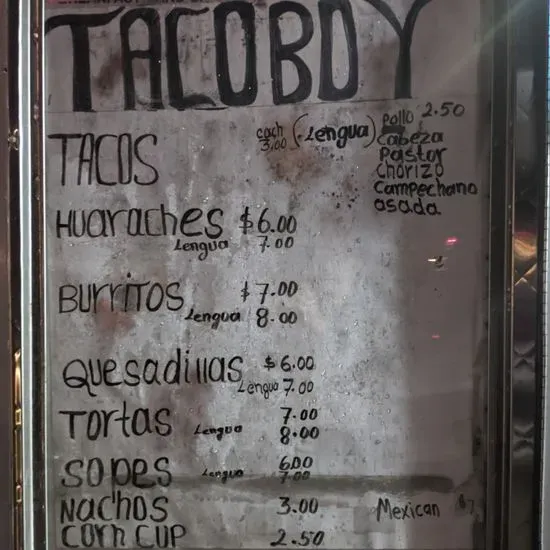 TACOBOY
TACOS each 3.00 (Lengua) Pollo 2.50
Cabeza
Pastor
Chorizo
Campechano
asada
Huaraches $6.00
Lengua 7.00
Burritos $7.00
Lengua 8.00
Quesadillas $6.00
Lengua 7.00
Tortas 7.00
Lengua 8.00
Sopes 6.00
Lengua 7.00
Nachos 3.00 Mexican $7
Corn cup 2.50